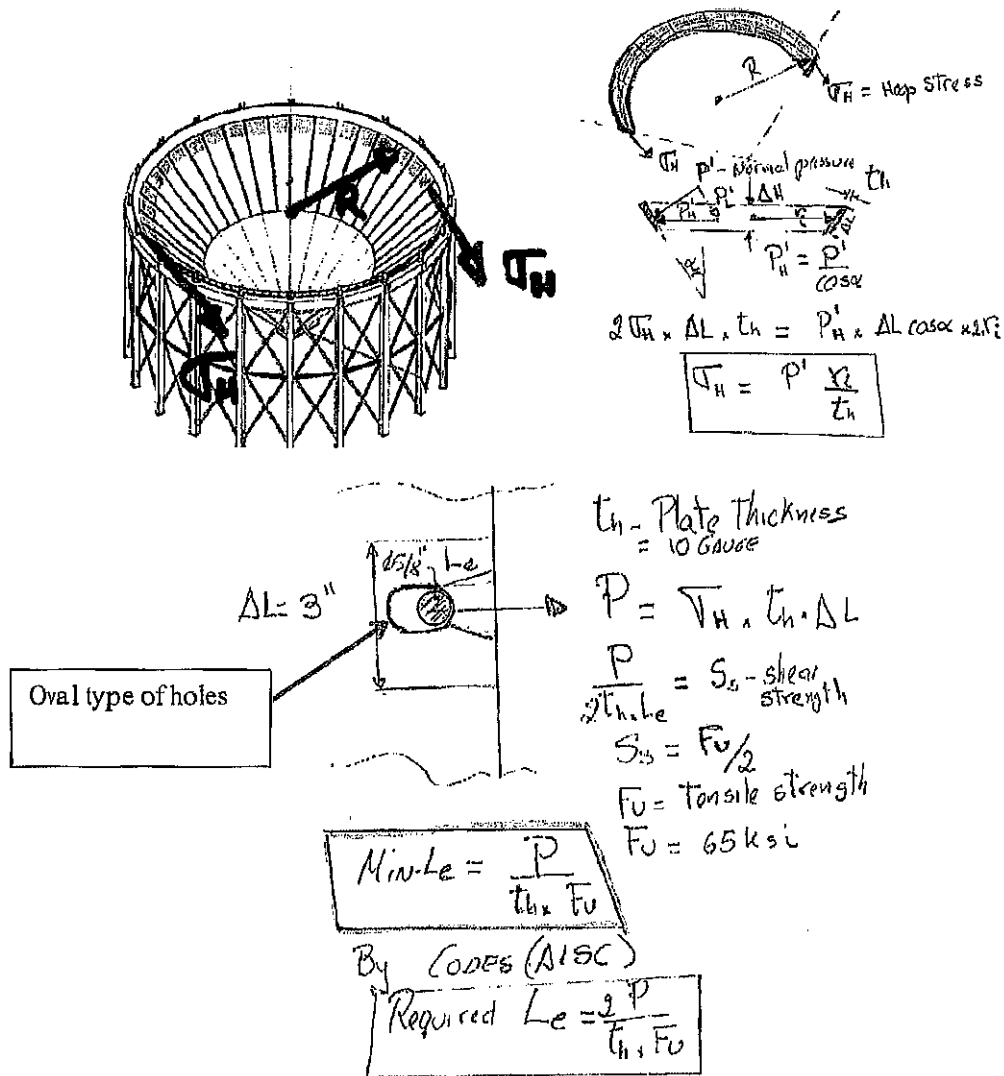 R
σH = Hoop stress
σH
P' - Normal pressure
R
σH
σH
PH' PL' ΔH ri ΔL th
α
PH' = P' / cosα
2σH × ΔL × th = PH' × ΔL cosα × 2ri
σH = P' ri / th
th - Plate Thickness
= 10 GAUGE
ΔL = 3"
5/8" Le
P = σH × th × ΔL
Oval type of holes
P / 2th × Le = Ss - shear strength
Ss = Fu/2
Fu = tensile strength
Fu = 65 ksi
Min-Le = P / th × Fu
By CODES (AISC)
Required Le = 2 P / th × Fu